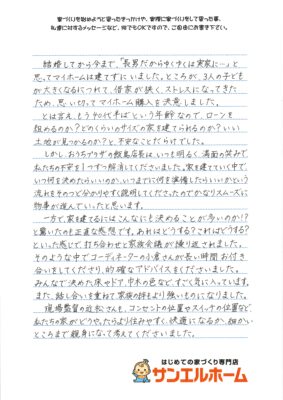 家づくりを始めようと思ったきっかけや、実際に家づくりをして思った事、
私達に対するメッセージなど、何でもOKですので、ご自由にお書き下さい。
結婚してから今まで、「長男だからゆくゆくは実家に…」と
思ってマイホームは建てずにいました。ところが、3人の子ども
が大きくなるにつれて、借家が狭く、ストレスになってきた
ため、思い切ってマイホーム購入を決意しました。
とは言え、もう40代半ばという年齢なので、ローンを
組めるのか?どのくらいのサイズの家を建てられるのか?いい
土地が見つかるのか?と、不安なことだらけでした。
しかし、おうちプラザの飯島店長は、いつも明るく、満面の笑みで
私たちの不安を1つずつ解消してくださいました。家を建てていく中で、
いつ何を決めたらいいのか、いつまでに何を準備したらいいか、という
流れをその つど分かりやすく説明してくださったのでかなりスムーズに
物事が進んでいったと思います。
一方で、家を建てるにはこんなにも決めることが多いのか!?
と驚いたのも正直な感想です。あれはどうする?これはどうする?
といった感じで、打ち合わせと家族会議が繰り返されました。
そのような中でコーディネーターの小倉さんが長い時間お付き
合いをしてくださり、的確なアドバイスをくださいました。
みんなで決めた床やドア、巾木の色など、すごく気に入っています。
また、話し合いを重ねて家族の絆もより強いものになりました。
現場監督の近松さんも、コンセントの位置やスイッチの位置など、
私たちの家がどうやったらより住みやすく、快適になるか、細かい
ところまで親身になって考えてくださいました。
はじめての家づくり専門店
サンエルホーム